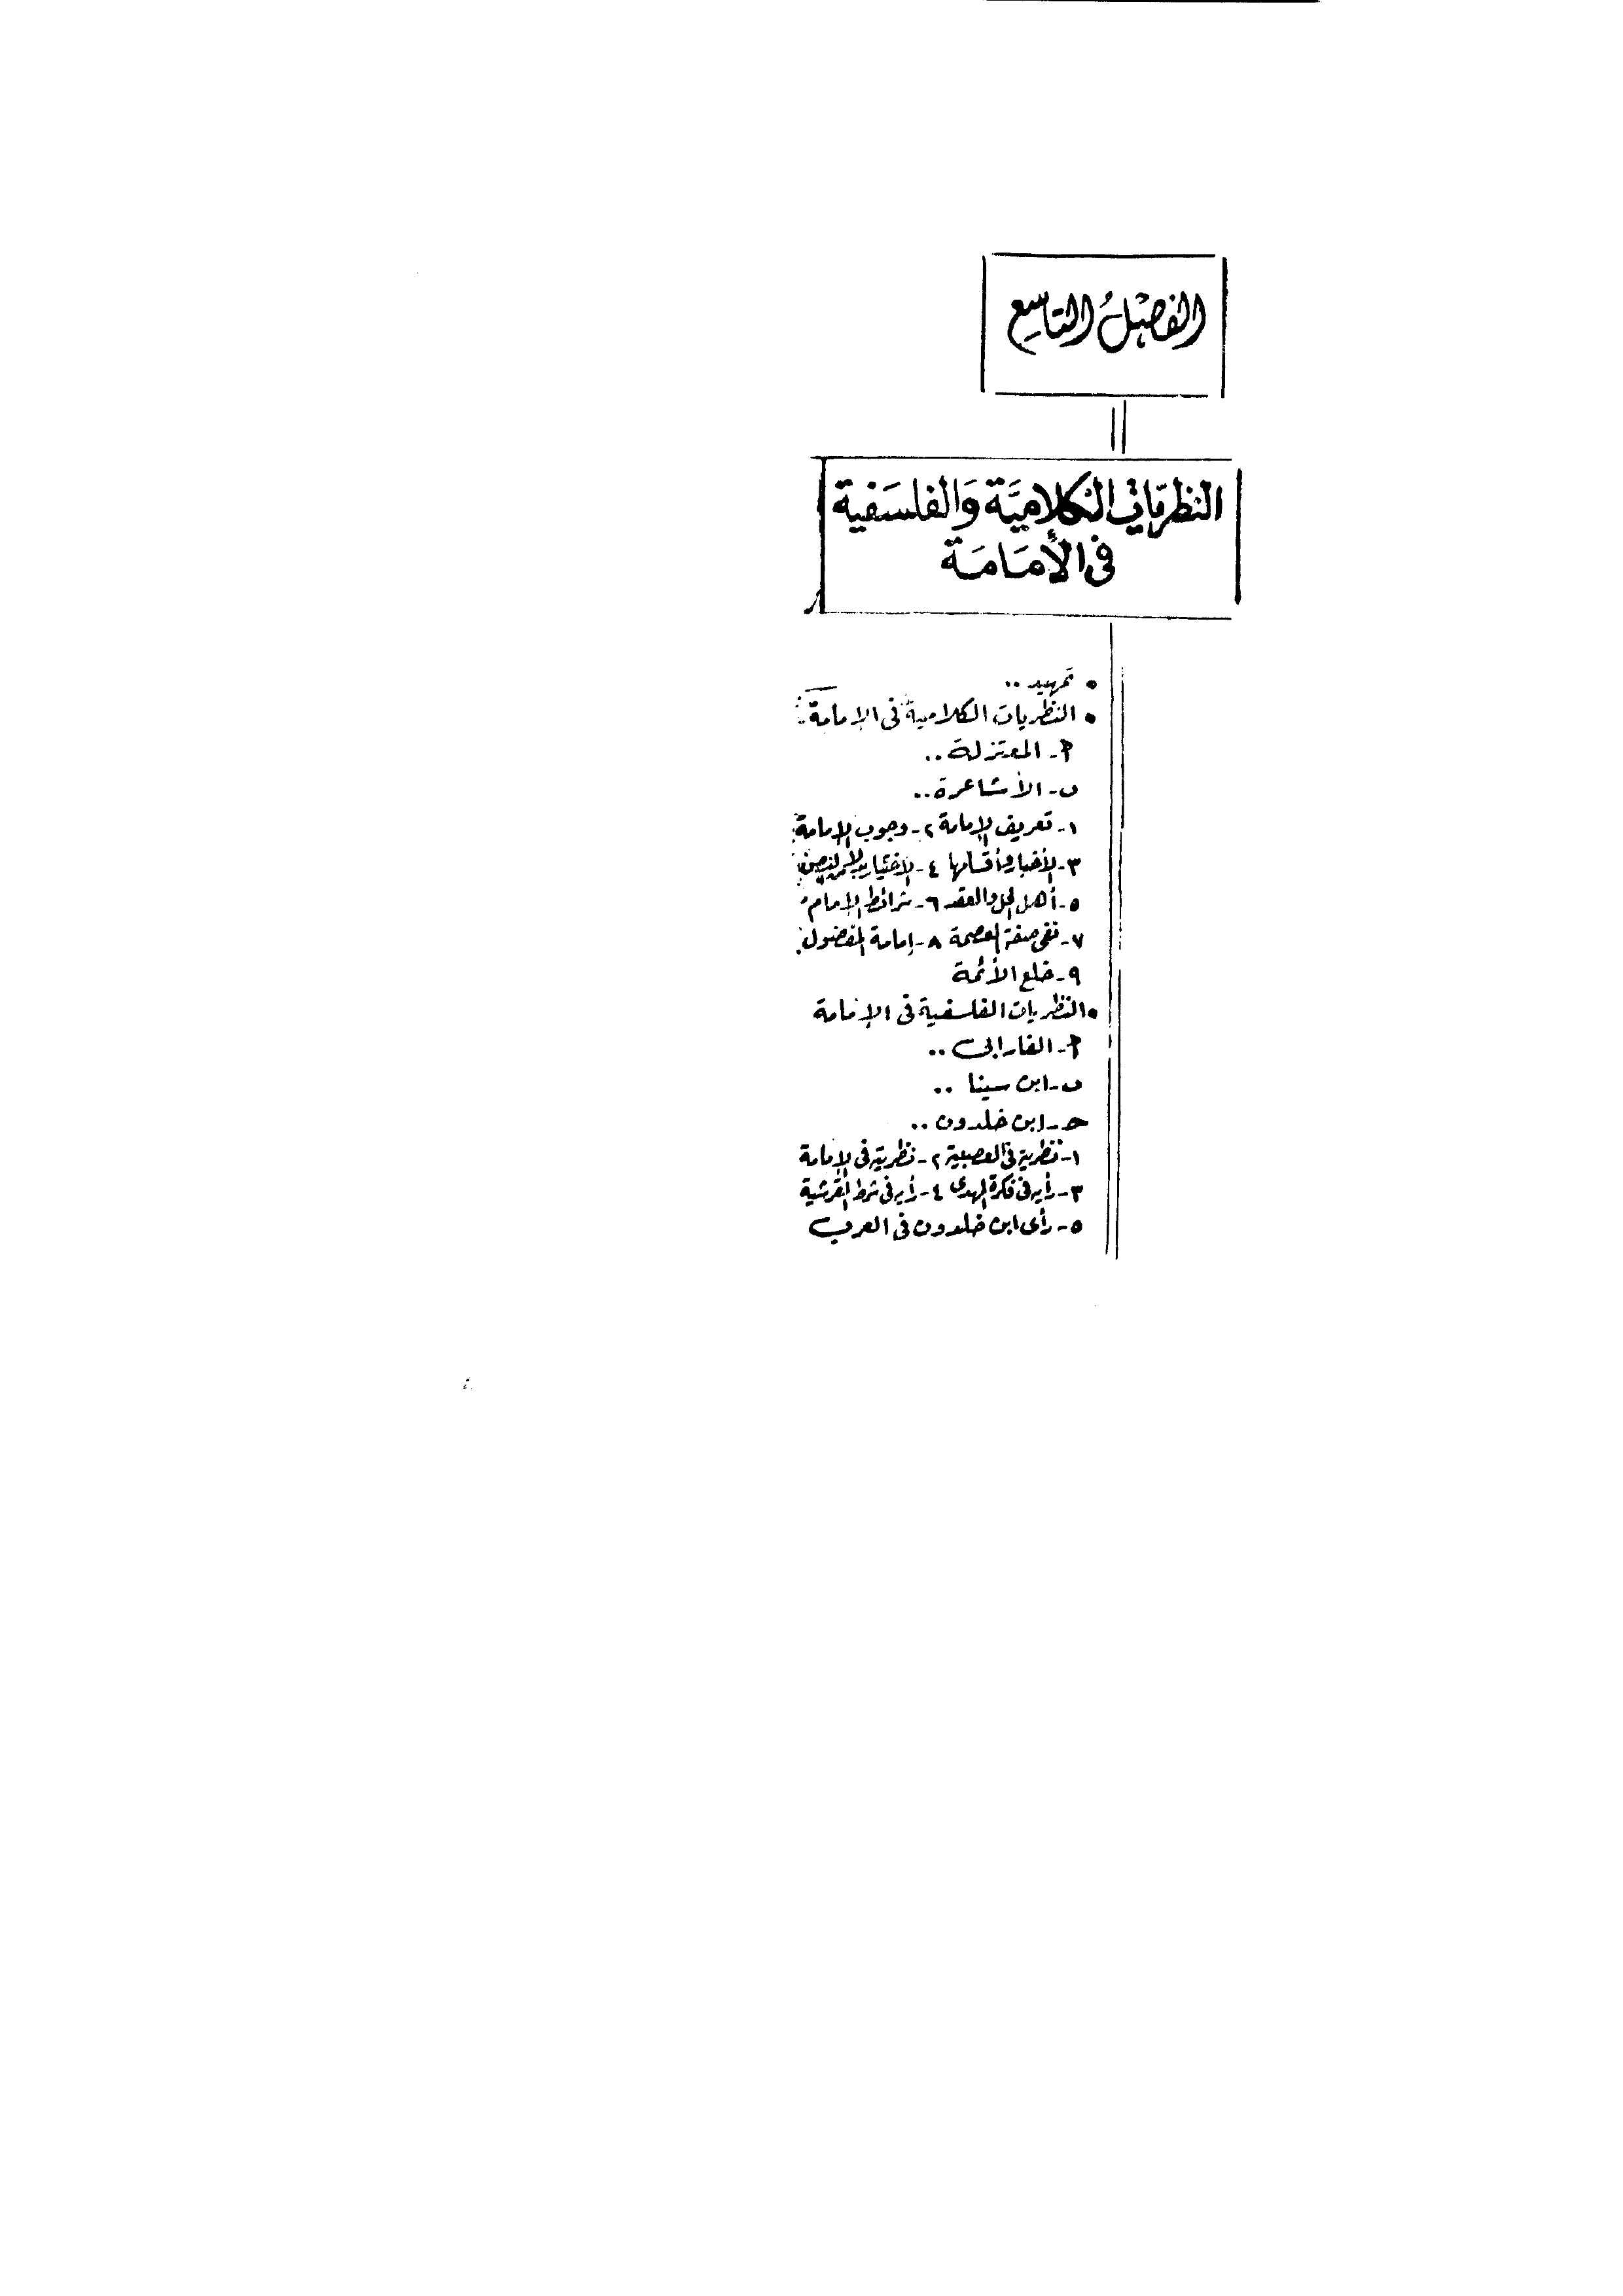 الفصْلُ التاسِع
النظريّات الكلاميَّة وَالفلسَفية
فى الأمَامَة
• تمهيد ..
• النظريات الكلامية فى الإمامة ..
أ- المعتزلة ..
ب- الأشاعرة ..
١- تعريف الإمامة ٢- وجوب الإمامة
٣- الأخبار وأقسامها ٤- الاختيار
٥- أهل الحل والعقد ٦- شرائط الإمام
٧- نفى صفة العصمة ٨- إمامة المفضول
٩- خلع الأئمة
• النظريات الفلسفية فى الإمامة
أ- الفارابى ..
ب- ابن سينا ..
حـ- ابن خلدون ..
١- نظرية فى العصبية ٢- نظرية فى الإمامة
٣- رأيه فى فكرة المهدى ٤- رأيه فى شرط القرشية
٥- رأى ابن خلدون فى العرب